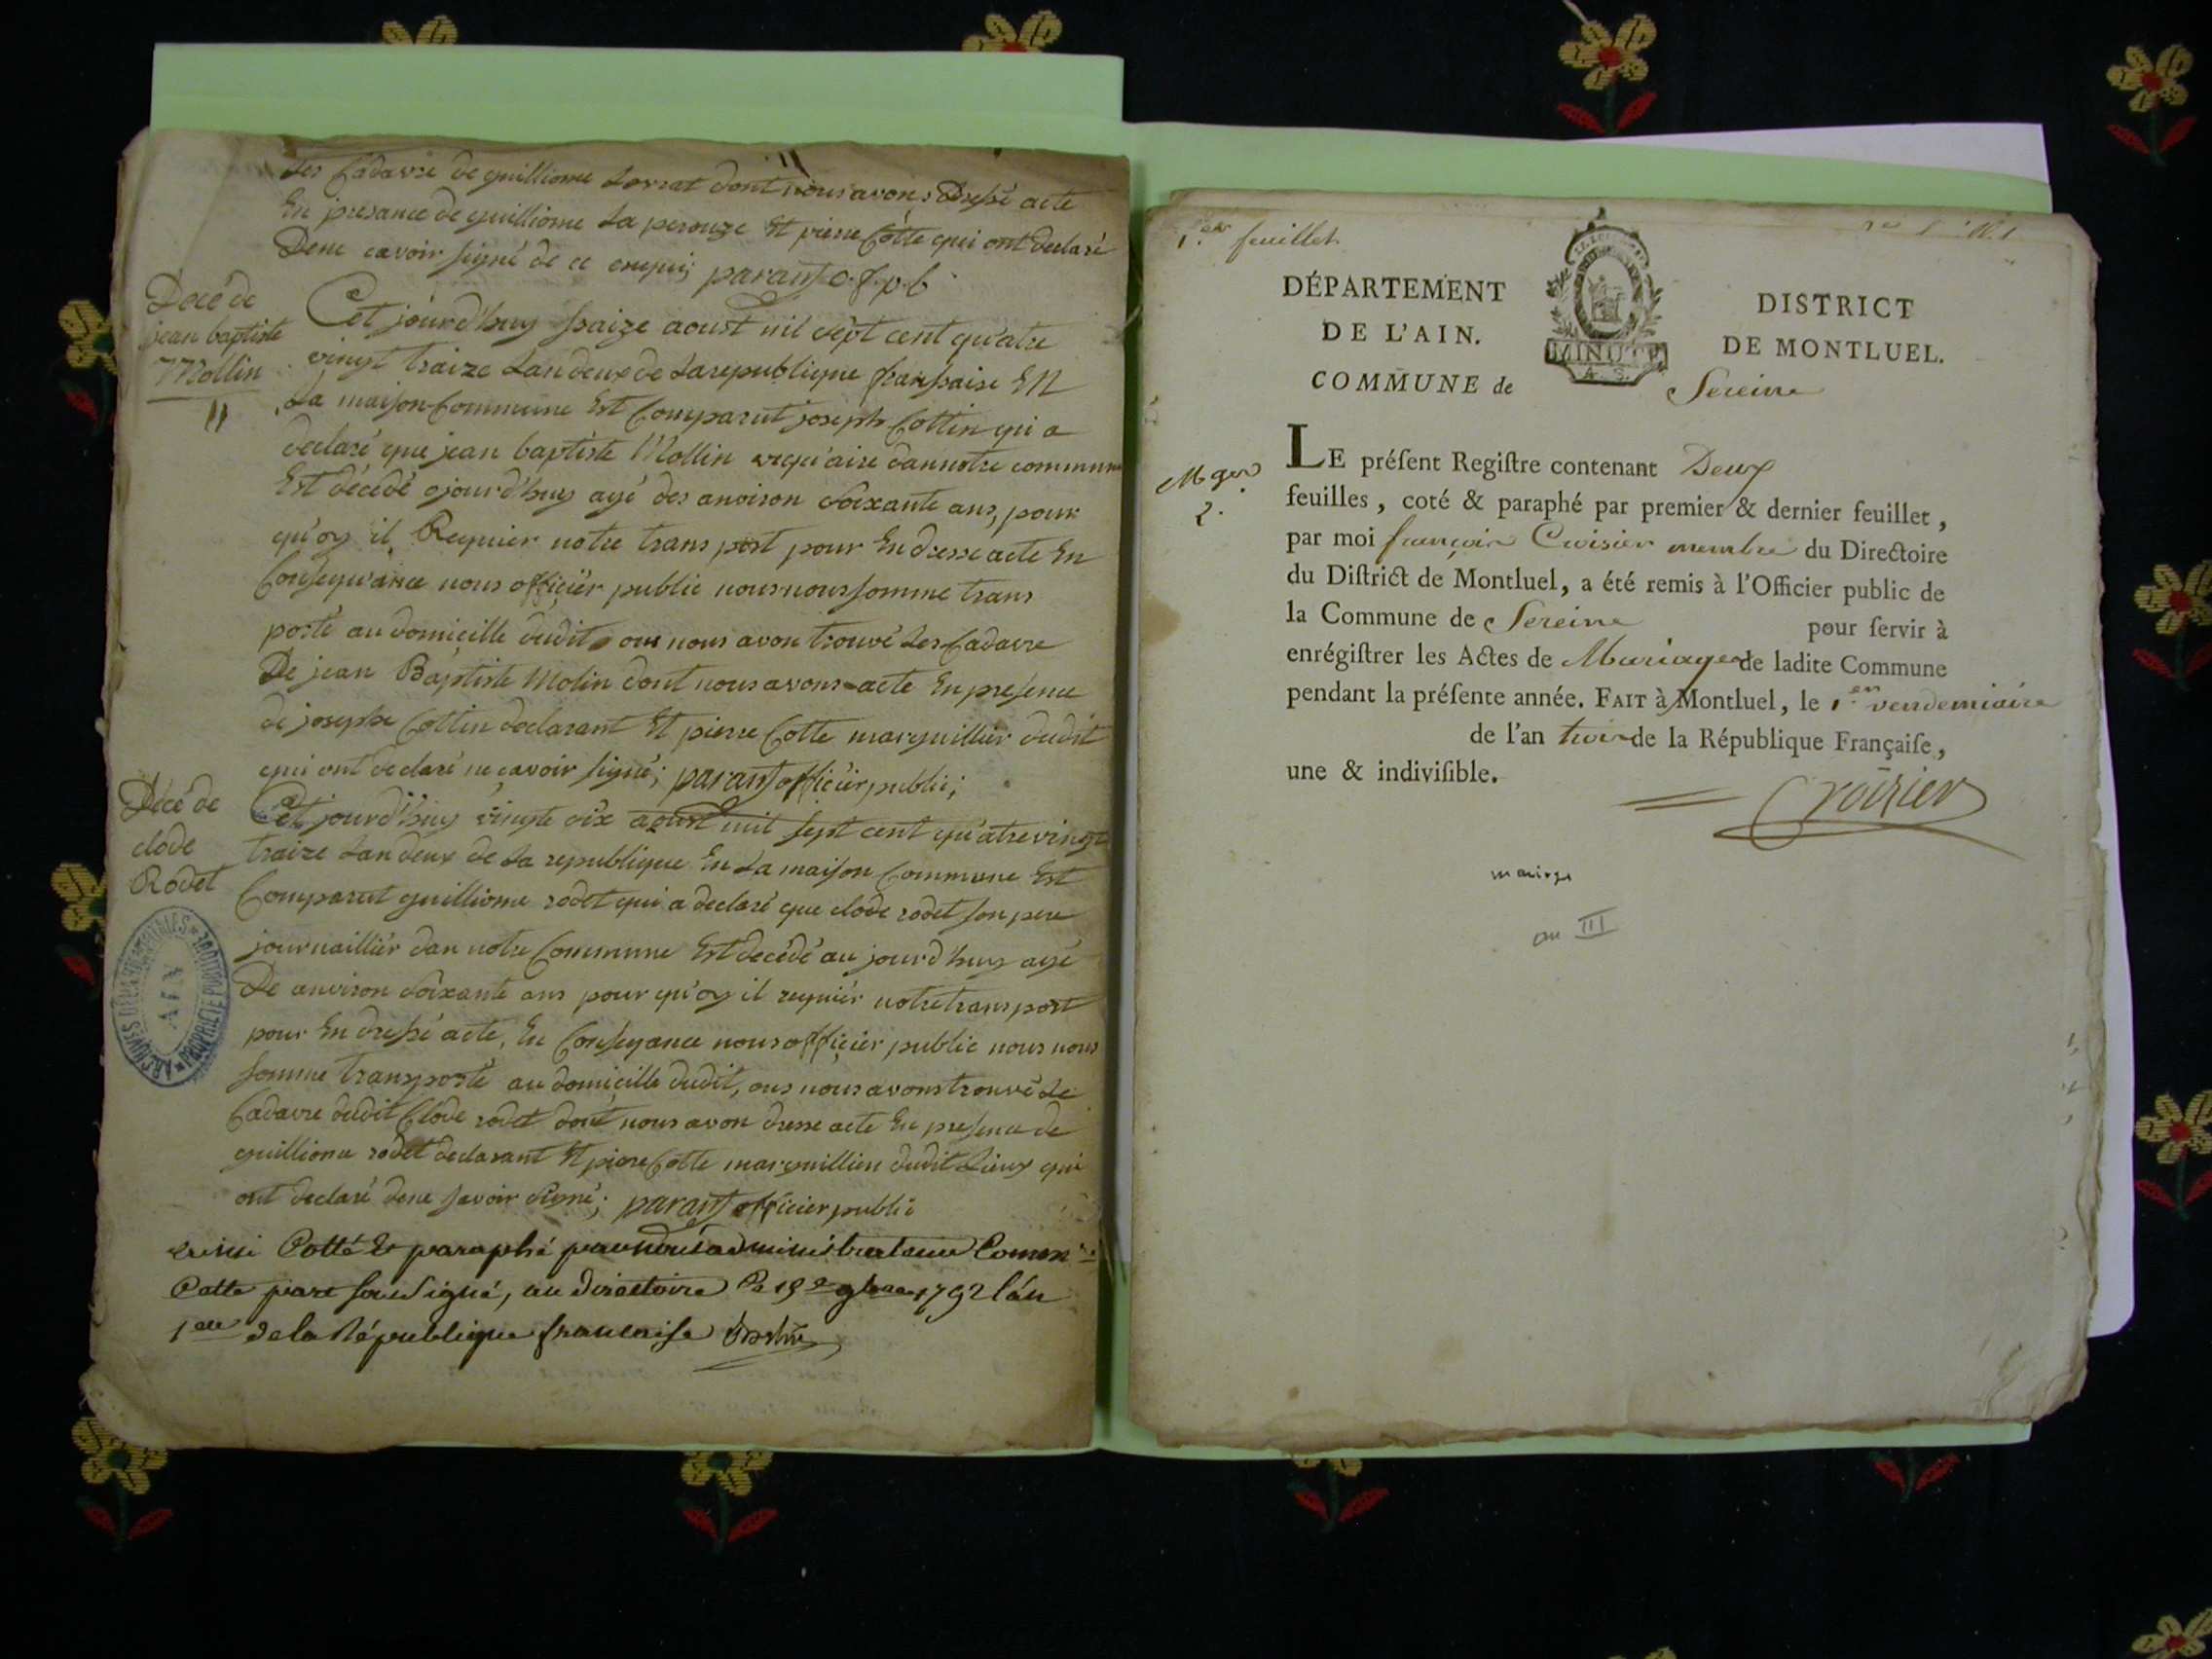 Les Cadavre de guilliome dont nous avons Dressé acte
En presance de guilliome La perouze Et pierre Cotte qui ont declaré
Dene savoir signé de ce enquis; parant o.f.p.b
Décé de
jean baptiste
Mollin
Cet jourd'huy saize aoust mil sept cent qu'atre
vingt traize Lan deux de La republique franssaise EN
La maison Commune Est Comparut joseph Cottin qui a
declaré que jean baptiste Mollin dan notre commune
Est décédé ojourd'huy agé des anviron soixante ans, pour
qu'oy il Requier notre trans port pour En dresse acte En
Consequance nous officiër public nous nous somme trans
porté au domicille dudit ous nous avon trouvé Les Cadavre
De jean Baptiste Molin dont nous avons acte En presence
de josephe Cottin declarant Et pierre Cotte marguillier dudit
qui ont declaré ne savoir signé; parant officiër public;
Décé de
clode
Rodet
Cet jourd'huy vingte six aoust mil sept cent qu'atre vingt
traize Lan deux de La republique En La maison Commune Est
Comparut guilliome rodet qui a declaré que clode rodet son pere
journaillier dan notre Commune Est decédé au jourd'huy agé
De anviron soixante ans pour qu'oy il requiér notre transport
pour En dressé acte, En Consequance nous officiër public nous nous
somme transporté au domicille dudit, ous nous avons trouvé Le
Cadavre dudit Clode rodet dont nous avon dresse acte En presence de
guilliome rodet declarant Et piere Cotte marguillien dudit Lieux qui
ont declaré dene savoir signé; parant officier public
Cotté & paraphé par nous administrateur Comm.re
Cette part soussigné, au Directoire le 19e 9bre 1792 l'an
1er de la République francaise
ARCHIVES DÉPARTEMENTALES
AIN
PROPRIÉTÉ PUBLIQUE
1.er feuillet
DÉPARTEMENT
DE L'AIN.
COMMUNE de Sereine
MINUTE
DISTRICT
DE MONTLUEL.
LE préſent Regiſtre contenant Deux
feuilles, coté & paraphé par premier & dernier feuillet,
par moi françois Croisier membre du Directoire
du Diſtrict de Montluel, a été remis à l'Officier public de
la Commune de Sereine pour ſervir à
enrégiſtrer les Actes de Mariages de ladite Commune
pendant la préſente année. FAIT à Montluel, le 1.er vendemiaire
de l'an trois de la République Françaiſe,
une & indiviſible.
Croizier
mariage
an III